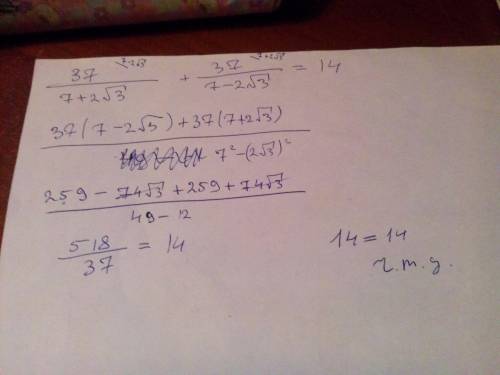 7-2√3 7+2√3
37/(7+2√3) + 37/(7-2√3) = 14
37(7-2√3)+37(7+2√3)
7²-(2√3)²
259-74√3+259+74√3
49-12
518/37 = 14
14=14
ч.т.д.